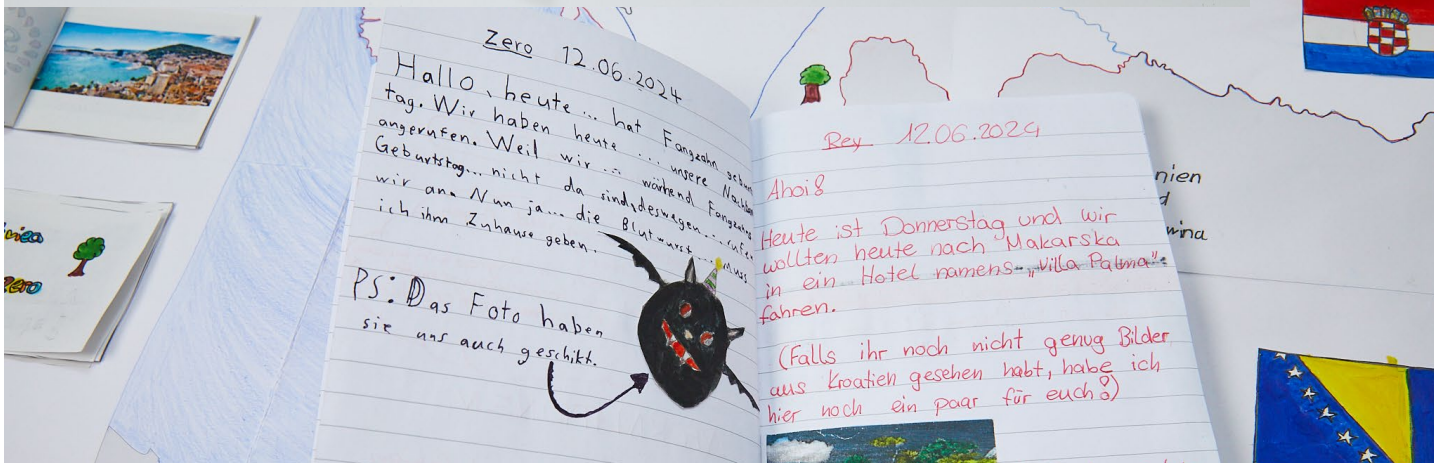 Zero 12.06.2024
Hallo, heute... hat Fangzahn
tag. Wir haben heute ... unsere
angerufen. Weil wir ... während
Geburtstag... nicht da sind, deswegen... rufen
wir an. Nun ja... die Blutwurst... muss
ich ihm Zuhause geben.
PS: Das Foto haben
sie uns auch geschikt.
Rey 12.06.2024
Ahoi!
Heute ist Donnerstag und wir
wollten heute nach Makarska
in ein Hotel namens „Villa Palma"
fahren.
(Falls ihr noch nicht genug Bilder
aus Kroatien gesehen habt, habe ich
hier noch ein paar für euch!)
nien
d
wina
Zero